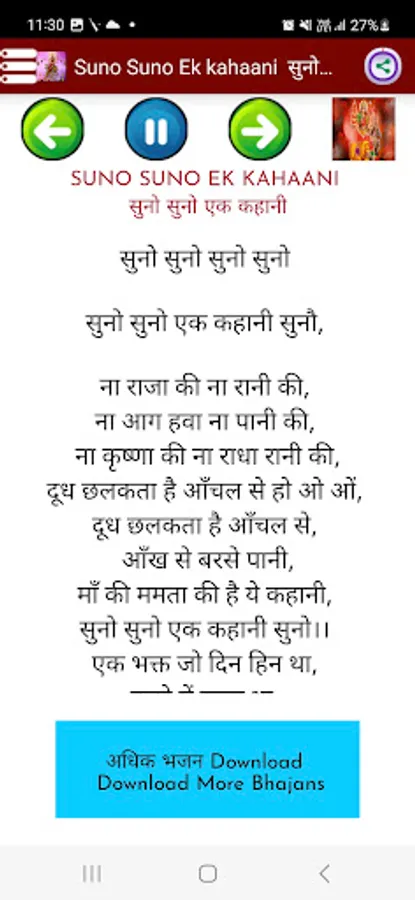 11:30 27%
Suno Suno Ek kahaani सुनो...
SUNO SUNO EK KAHAANI
सुनो सुनो एक कहानी
सुनो सुनो सुनो सुनो
सुनो सुनो एक कहानी सुनौ,
ना राजा की ना रानी की,
ना आग हवा ना पानी की,
ना कृष्णा की ना राधा रानी की,
दूध छलकता है आँचल से हो ओ ओं,
दूध छलकता है आँचल से,
आँख से बरसे पानी,
माँ की ममता की है ये कहानी,
सुनो सुनो एक कहानी सुनो।।
एक भक्त जो दिन हिन था,
अधिक भजन Download
Download More Bhajans